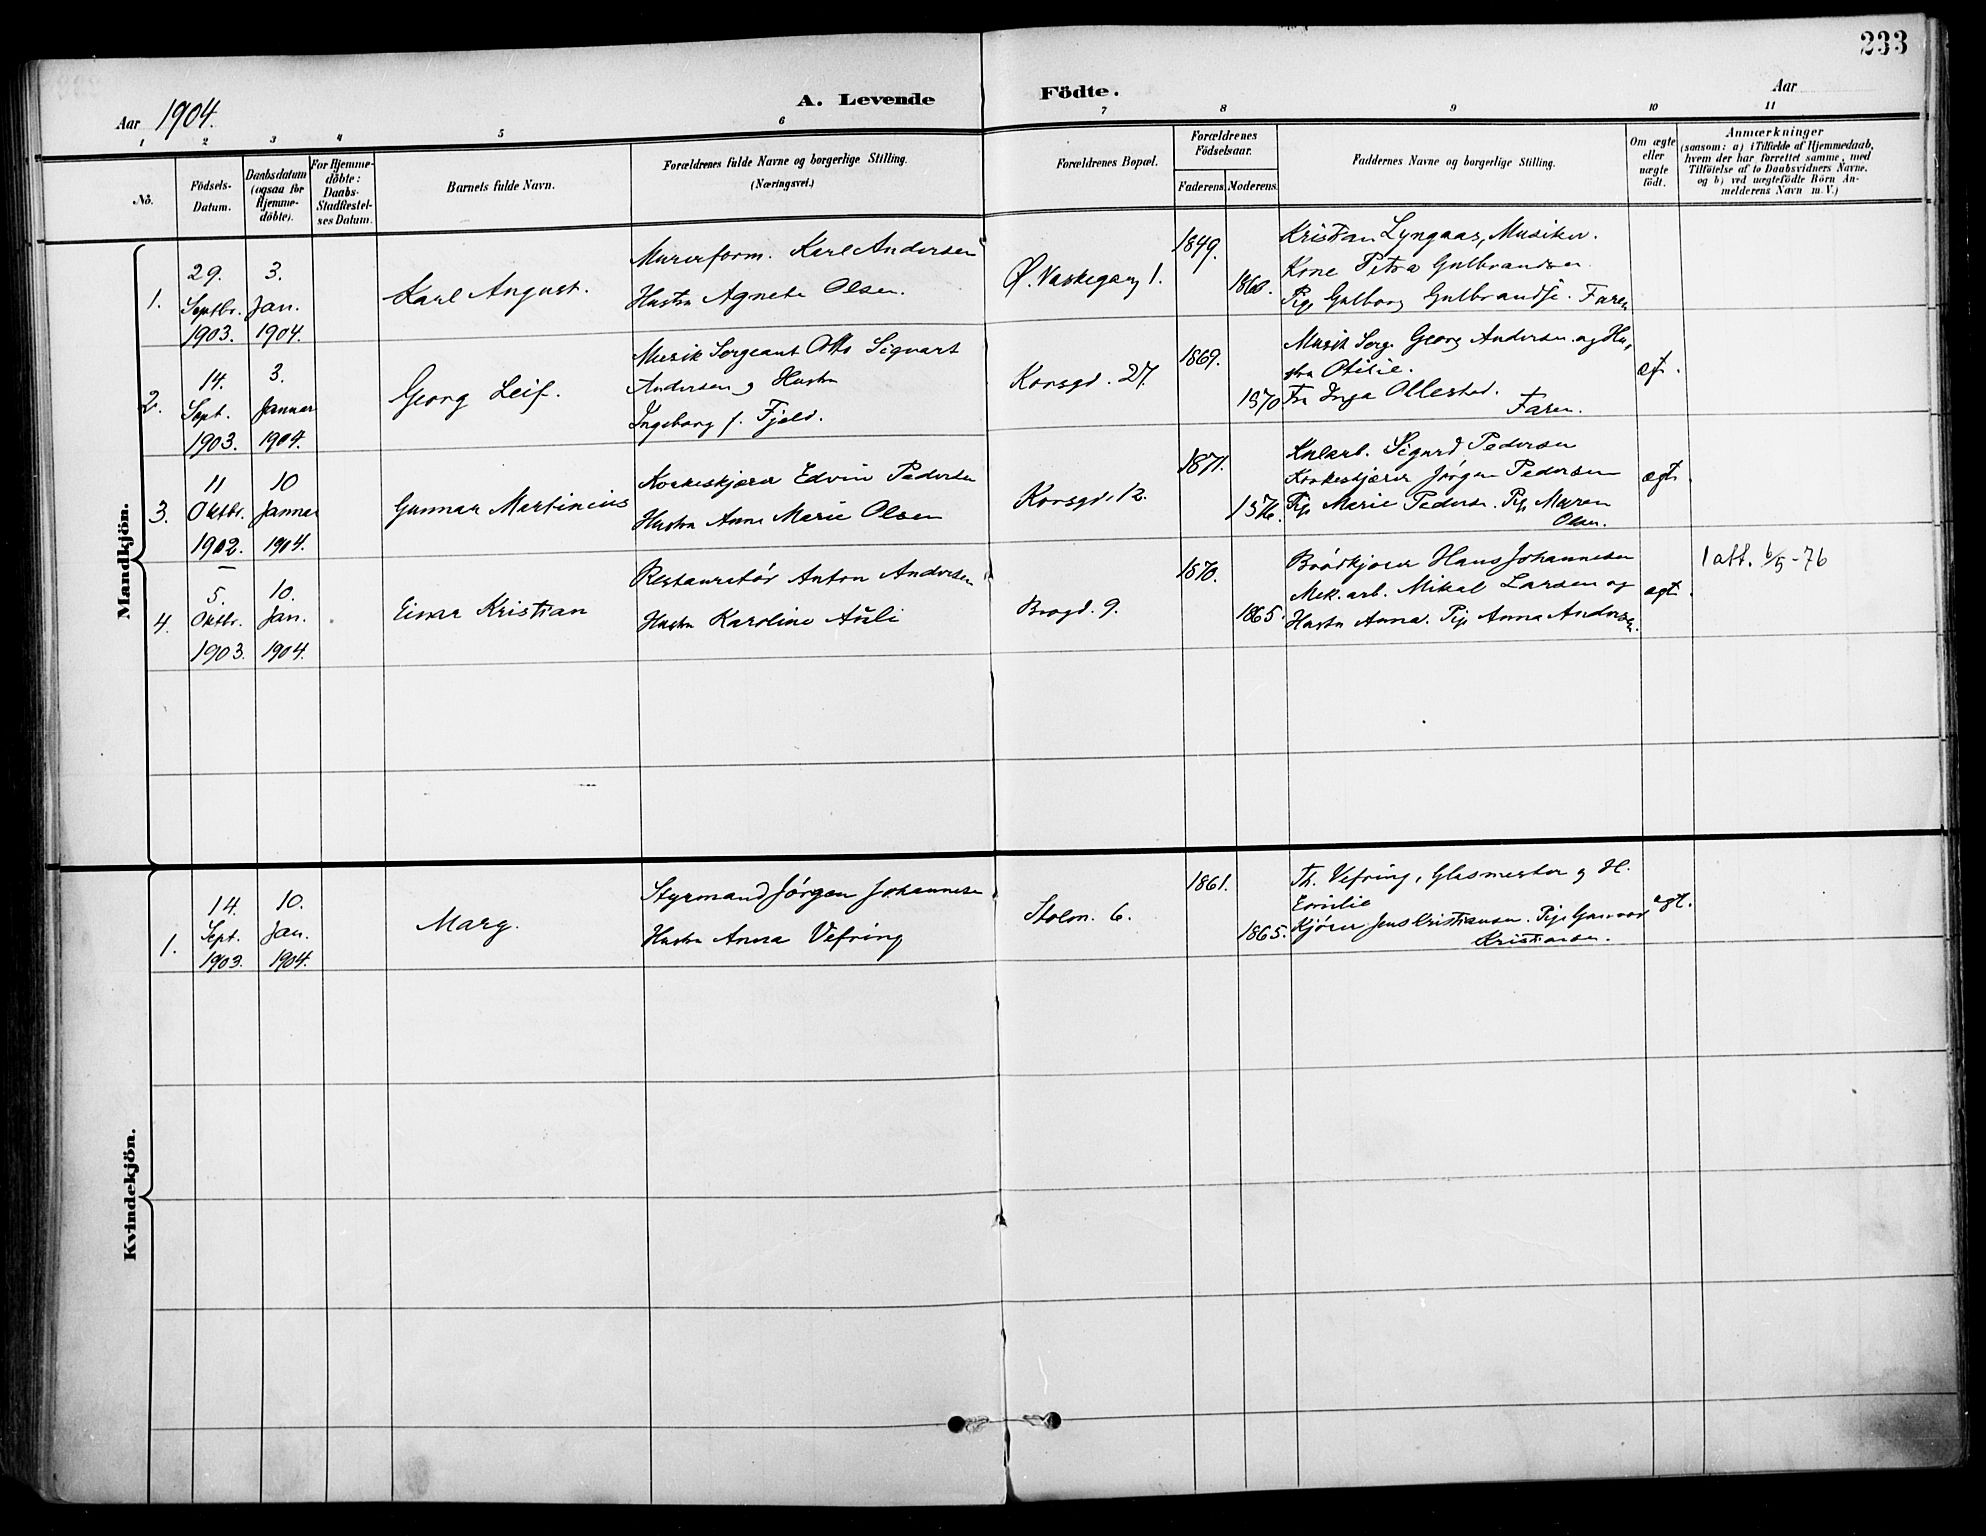 233
Aar 1904.
A. Levende Födte.
Aar
1 2 3 4 5 6 7 8 9 10 11
No.
Födsels-
Datum.
Daabsdatum
(ogsaa for
Hjemme-
döbte).
For Hjemme-
döbte:
Daabs-
Stadfæstel-
ses Datum.
Barnets fulde Navn.
Forældrenes fulde Navne og borgerlige Stilling.
(Næringsvei.)
Forældrenes Bopæl.
Forældrenes
Födselsaar.
Faderens. Moderens.
Faddernes Navne og borgerlige Stilling.
Om ægte
eller
uægte
födt.
Anmærkninger
(saasom: a) i Tilfælde af Hjemmedaab,
hvem der har forrettet samme, med
Tilföielse af to Daabsvidners Navne.
og b) ved uægtefödte Börn An-
melderens Navn m. V.)
Mandkjön.
1.
29.
Septbr.
1903.
3.
Jan.
1904.
Karl August.
Murerform. Karl Andersen
Hustru Agnete Olsen.
Ø. Vaskegang 1.
1849.
1860.
Kristian Lyngaas, Musiker.
Kone Petra Gulbrandsen.
Pige Gulborg Gulbrandse. Faren
2.
14.
Sept.
1903.
3.
Januar
1904.
Georg Leif.
Musik Sergeant Otto Sigvart
Andersen og Hustru
Ingeborg f. Fjeld.
Korsgd. 27.
1869.
1870
Musik Serg. Georg Andersen og Hu,
stru Otilie.
Fru Inga Ollestad.
Faren.
æt.
3.
11
Oktbr.
1902.
10
Januar
1904.
Gunnar Martinius
Korkeskjærer Edvin Pedersen
Hustru Anne Marie Olsen
Korsgd. 12.
1871.
1876.
Kularb. Sigurd Pedersen
Korkeskjærer Jørgen Pedersen
Pige Marie Pedersen. Pige Maren
Olsen.
ægt.
4.
5.
Oktbr.
1903.
10.
Jan.
1904.
Einar Kristian
Restauratør Anton Andersen
Hustru Karoline Auli
Brogd. 9.
1870.
1865.
Brødkjører Hans Johannesen
Mek. arb. Mikal Larsen og
Hustru Anna. Pige Anna Andersen.
ægt.
1 att. 6/5-76
Kvindekjön.
1.
14.
Sept.
1903.
10.
Jan.
1904.
Marg.
Styrmand Jørgen Johannesen
Hustru Anna Vefring
Stolm. 6.
1861.
1865.
Th. Vefring, Glasmester og H.
Emilie
Kjører Jens Kristiansen. Pige Gunvor
Kristiansen.
ægt.